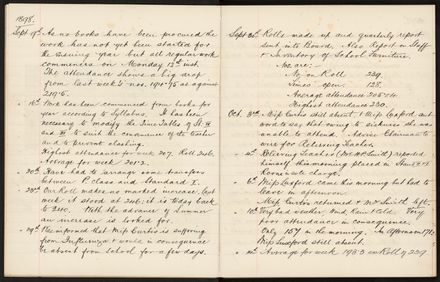 1898.
Sept 9th As no books have been procured the
work has not yet been started for
the ensuing year but all regular work
commences on Monday 12th inst.
The attendance shows a big drop
from last week's nos. 191.75 as against
219.5.
" 16th Work has been commenced from books for
year according to Syllabus. It has been
necessary to modify the Time Tables of St. II
and III to suit the convenience of the teacher
and to prevent clashing.
Highest attendance for week 207. Roll 246.
Average for week 201.2.
" 20th Have had to arrange some transfers
between P. class and Standard I.
" 28th Our Roll makes no marked increase. Last
week it stood at 246; it is today back
to 240. With the advance of Summer
an increase is looked for.
" 29th Am informed that Miss Curtis is suffering
from Influenza & would in consequence
be absent from School for a few days.
Sept 30th Rolls made up and quarterly report
sent into Board. Also Report on Staff
& Inventory of School Furniture.
Nos. are:-
No on Roll 239.
Times open 125
Average attendance 205
Highest attendance 230.
Oct. 3rd Miss Curtis still absent & Miss Laxford sent
word to say that owing to sickness she was
unable to attend. Advise Chairman to
wire for Relieving Teacher.
" 4th Relieving Teacher (Mr McSmith) reported
himself this morning placed in
Room into charge.
" 6th Miss Laxford came this morning but had to
leave in afternoon.
Miss Curtis returned & Mr Smith left.
" 10th Very bad weather, Wind, Rain & Cold. Very
poor attendance in consequence.
Only 157 in the morning. In Afternoon 171.
Miss Luxford still absent.
" Average for week 198.3 on Roll of 239.